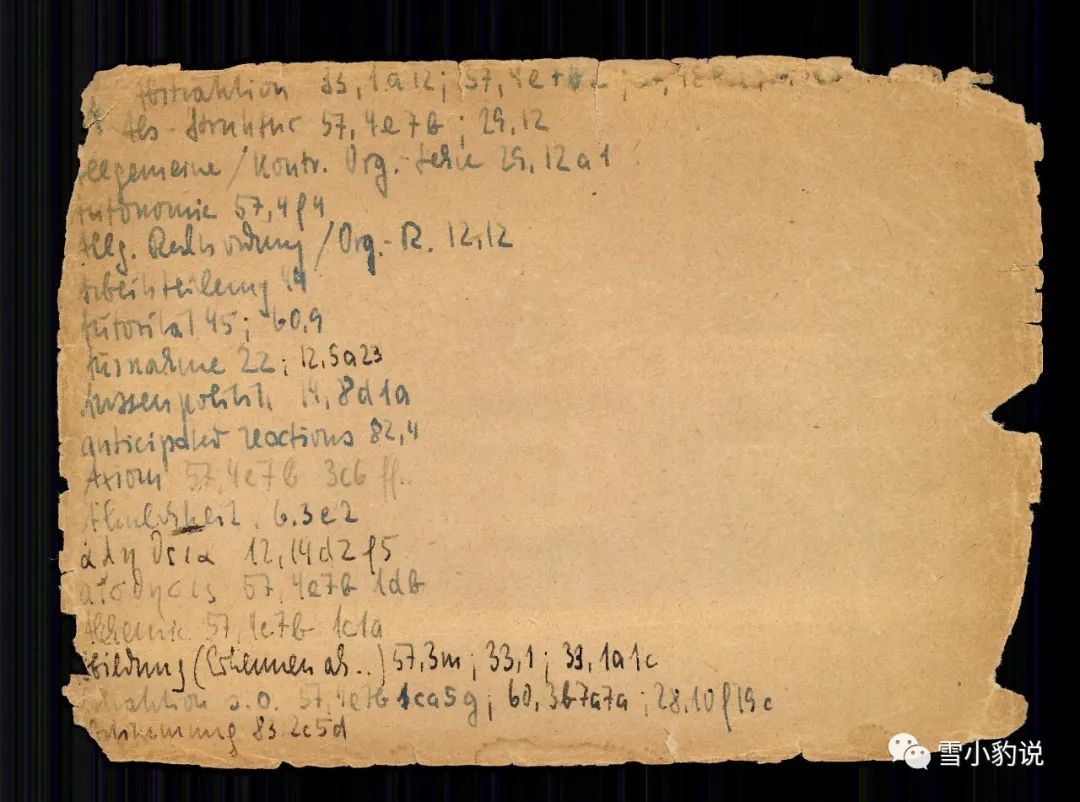 Abstraktion 33,1a12; 57,4e
Als-Struktur 57,4e7b; 29,12
Allgemeine/Kontr. Org.-Serie 29,12a1
Autonomie 57,4f4
Allg. Rechtsordnung/Org.-R. 12,12
Arbeitsteilung 44
Autorität 45; 60,9
Ausnahme 22; 12,5a23
Aussenpolitik 14,8d1a
anticipated reactions 82,4
Axiom 57,4e7b 3c6 ff.
Ähnlichkeit 6.3e2
12,14d2f5
57,4e7b 1db
57,4e7b 1c1a
Abbildung (Erkennen als..) 57,3m; 33,1; 33,1a1c
Abstraktion s.o. 57,4e7b 1ca5g; 60,3b7a7a; 28.10f19c
83.2c5d
雪小豹说